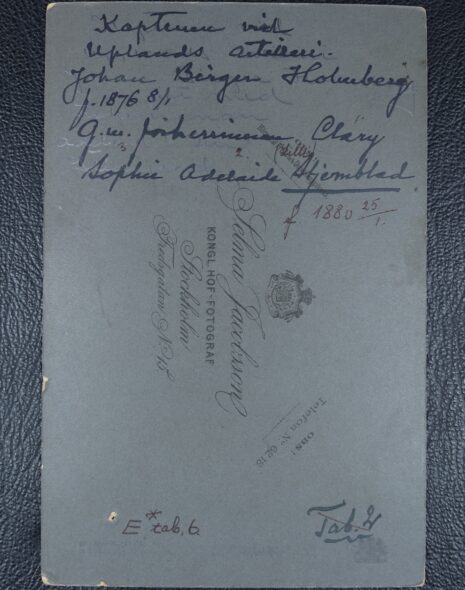 Kaptenen vid
Uplands artilleri.
Johan Birger Holmberg
f. 1876 8/1
G.m. friherrinnan Cläry
3 2
Sophie Adelaide Stjernblad
f 1880 25/1.
Selma Jacobsson
KONGL. HOF-FOTOGRAF
Stockholm
Fredsgatan No 15
obs!
Telefon No 62 18
E* tab. 6.
Tab. 4